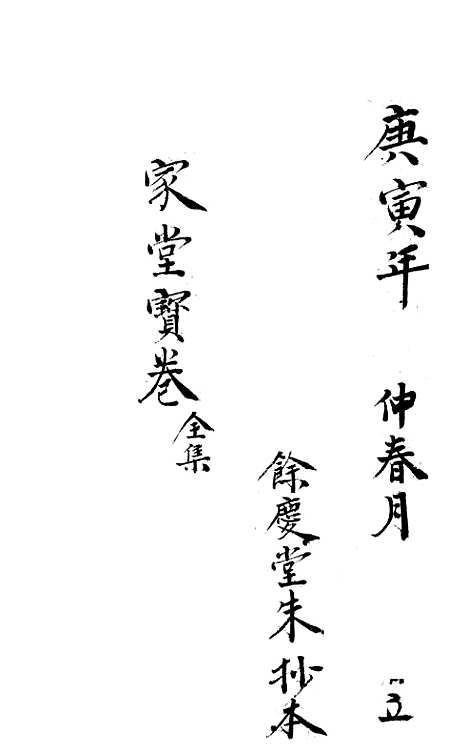 庚寅年 仲春月 五
餘慶堂朱抄本
家堂寳卷全集